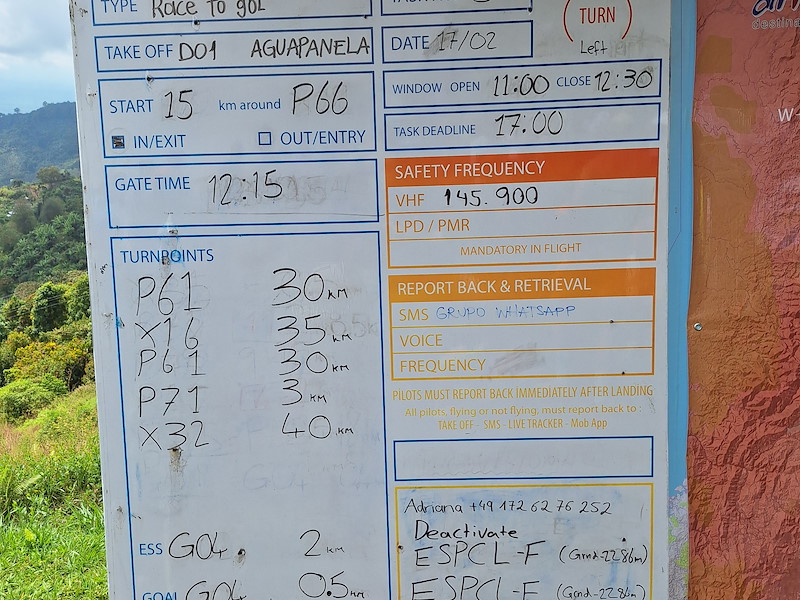 TYPE Race to goL
TAKE OFF D01 AGUAPANELA
START 15 km around P66
IN/EXIT OUT/ENTRY
GATE TIME 12:15
TURNPOINTS
P61 30 KM
X16 35 KM
P61 30 KM
P71 3 KM
X32 40 KM
ESS G04. 2 KM
GOAL G04 0.5 KM
TURN
Left
DATE 17/02
WINDOW OPEN 11:00 CLOSE 12:30
TASK DEADLINE 17:00
SAFETY FREQUENCY
VHF 145.900
LPD / PMR
MANDATORY IN FLIGHT
REPORT BACK & RETRIEVAL
SMS GRUPO WHATSAPP
VOICE
FREQUENCY
PILOTS MUST REPORT BACK IMMEDIATELY AFTER LANDING
All pilots, flying or not flying, must report back to :
TAKE OFF - SMS - LIVE TRACKER - Mob App
Adriana +49 172 62 76 252
Deactivate
ESPCL-F (Grnd-2286m)
ESPCL-F (Grnd-2286m)
W